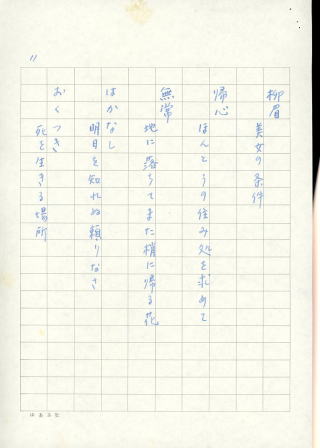 11
柳眉
美女の条件
帰心
ほんとうの住み処を求めて
無常
地に落ちてまた梢に帰る花
はかなし
明日を知れぬ頼りなさ
おくつき
死を生きる場所